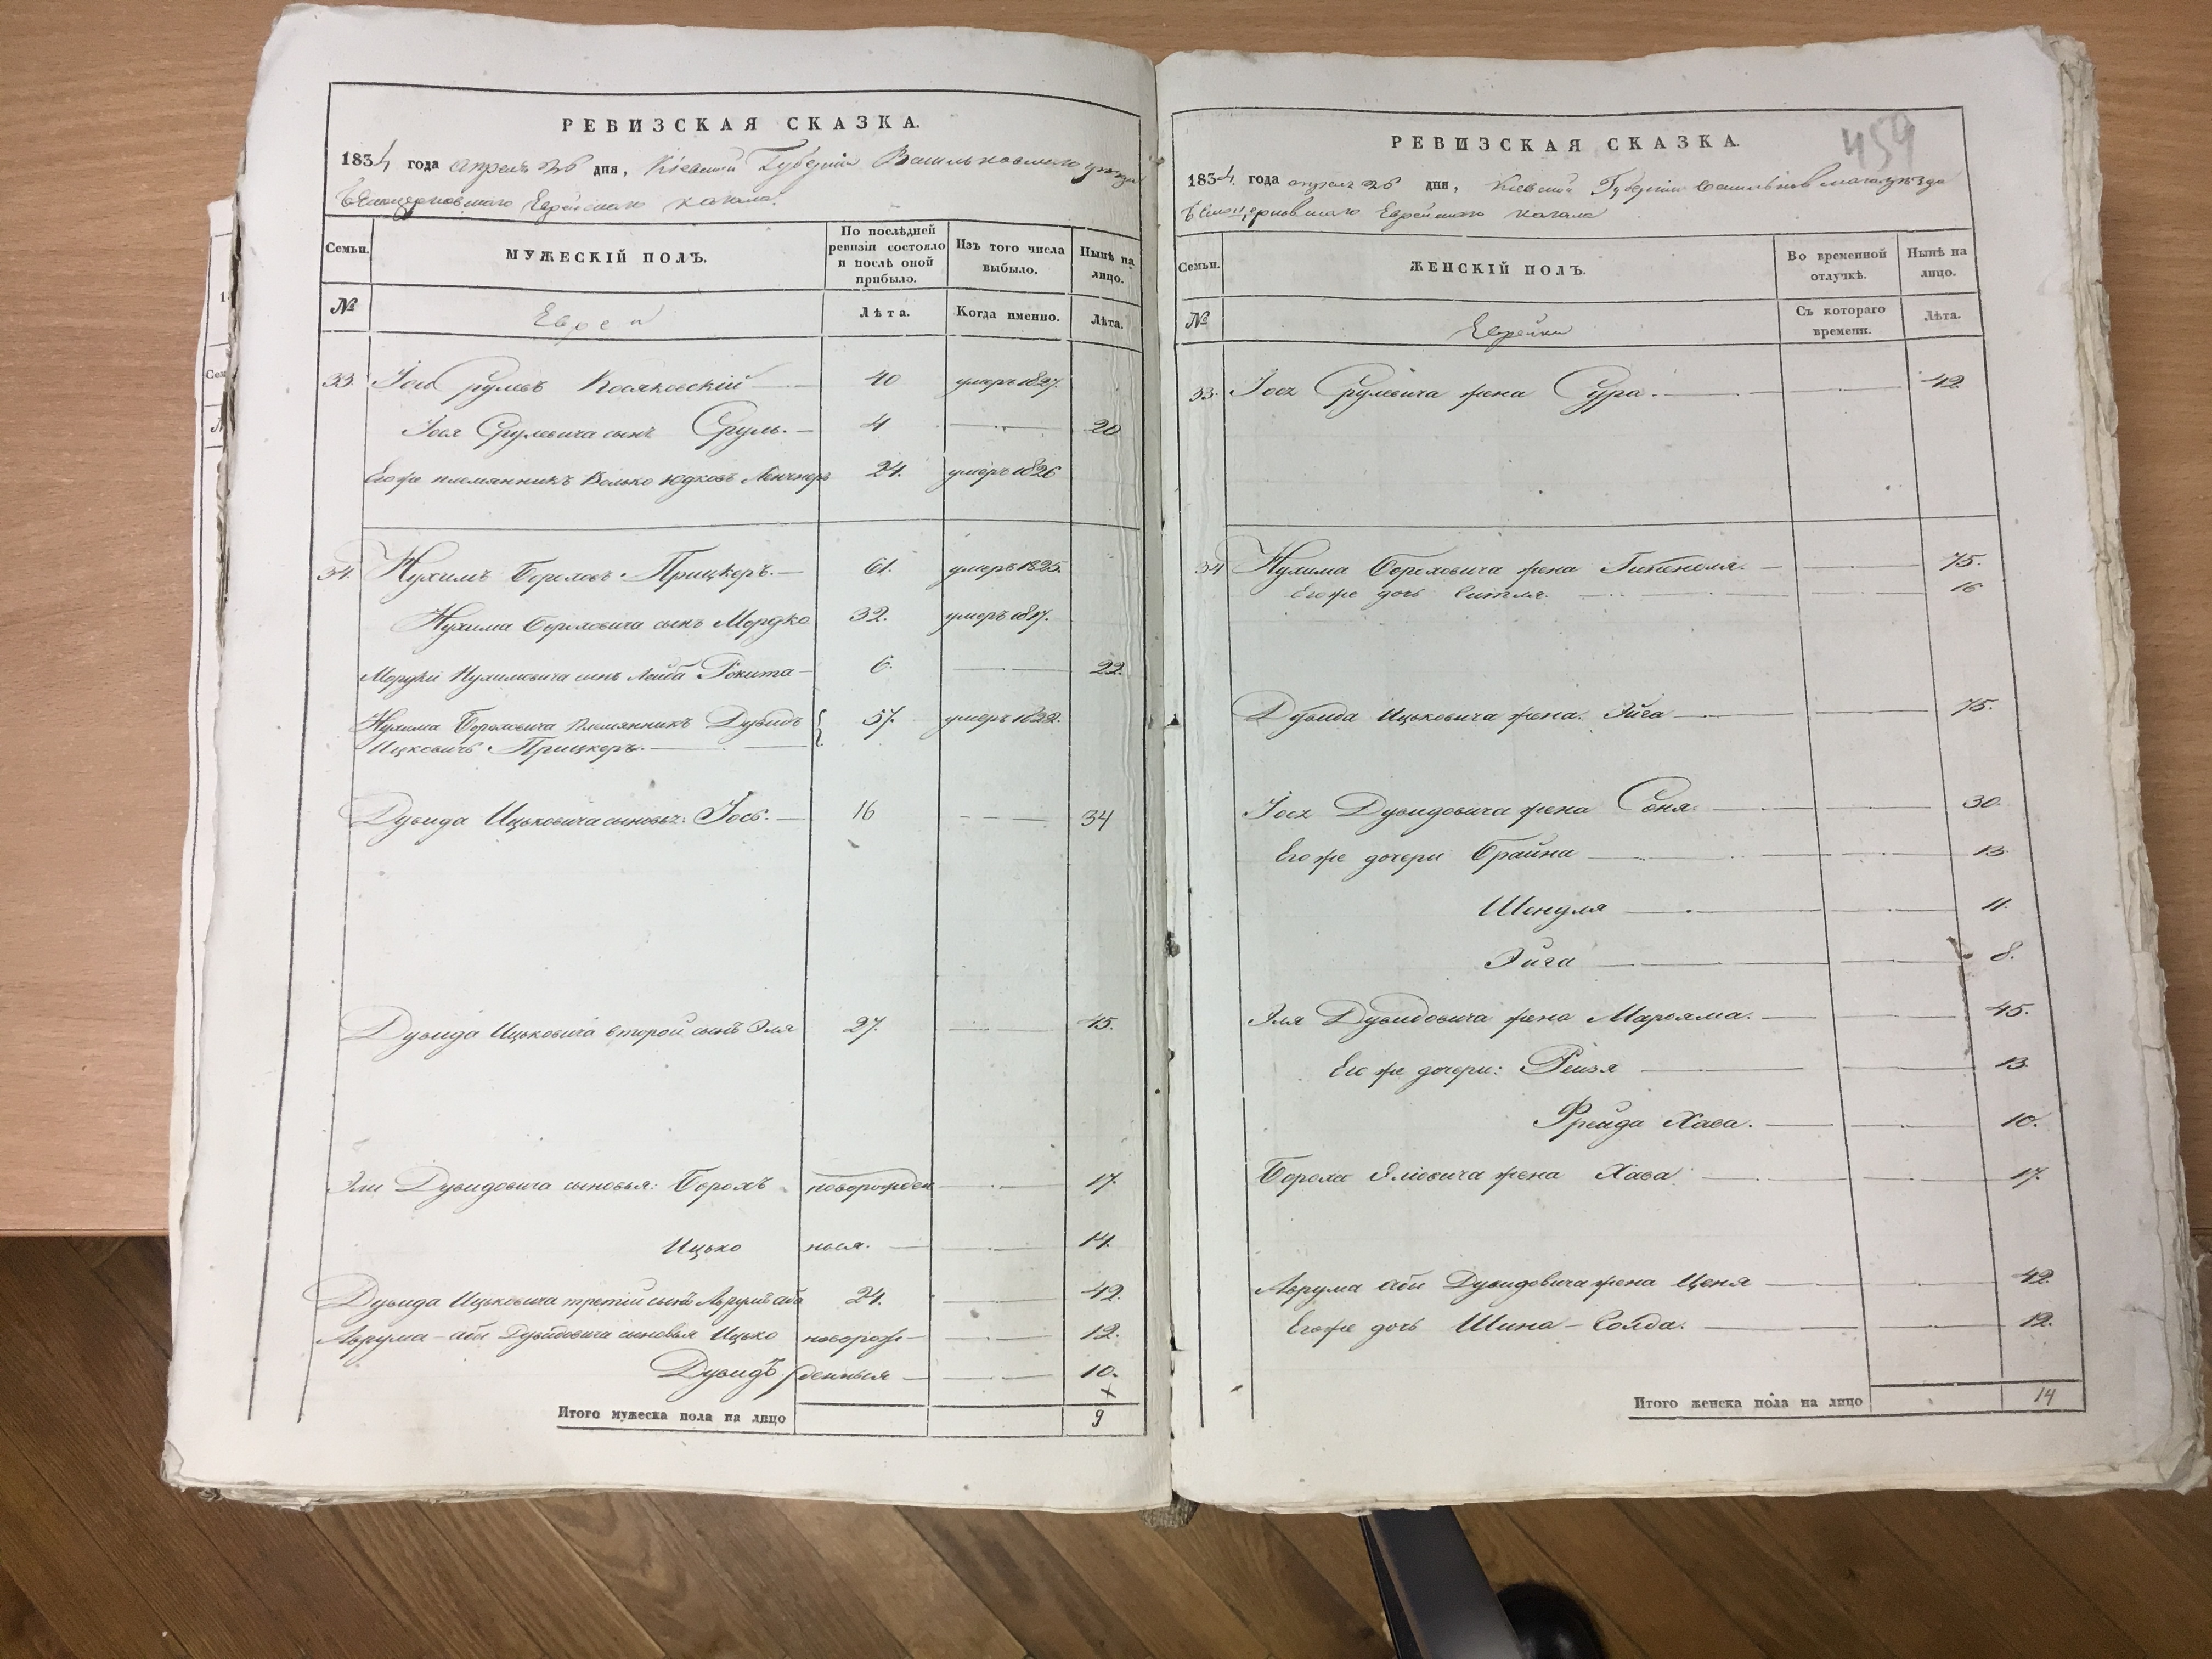 РЕВИЗСКАЯ СКАЗКА.
1834 года апреля 26 дня, Кіевской Губерніи Васильковскаго уезда
Белоцерковскаго Еврейскаго кагала.
Семьи.
МУЖЕСКІЙ ПОЛЪ.
По послѣдней ревизіи состояло и послѣ оной прибыло.
Изъ того числа выбыло.
Нынѣ на лицо.
№
Евреи
Лѣта.
Когда именно.
Лѣта.
33. Іось Срулевъ 40 умеръ 1827.
Іося Срулевича сынъ Сруль. 4 20
Егоже племянникъ Волько Юдковъ 24. умеръ 1826
34. Нухимъ Бороховъ Прицкеръ. 61. умеръ 1825.
Нухима Бороховича сынъ Мордко 32. умеръ 1817.
Мордки Нухимовича сынъ Лейба Рокита 6. 22.
Нухима Бороховича племянникъ Дувидъ 57. умеръ 1822.
Ицковичъ Прицкеръ.
Дувида Ицьковича сыновья: Іось. 16 34
Дувида Ицьковича второй сынъ Эля 27. 45.
Эли Дувидовича сыновья: Борохъ новорожден 17.
Ицько ныя. 14.
Дувида Ицьковича третій сынъ Аврумъ аба 24. 42.
Аврума-абы Дувидовича сыновья Ицько новорож- 12.
Дувидъ денныя 10.
Итого мужеска пола на лицо 9
РЕВИЗСКАЯ СКАЗКА.
459
1834 года апреля 26 дня, Кіевской Губерніи Васильковскаго уезда
Белоцерковскаго Еврейскаго кагала
Семьи.
ЖЕНСКІЙ ПОЛЪ.
Во временной отлучкѣ.
Нынѣ на лицо.
№
Еврейки
Съ котораго времени.
Лѣта.
33. Іося Срулевича жена Сура. 42.
34 Нухима Бороховича жена 75.
Егоже дочь 16
Дувида Ицьковича жена. Эйга 75.
Іося Дувидовича жена Соня. 30.
Его же дочери Брайна 13.
Шендля 11.
Эйга 8.
Эля Дувидовича жена Марьяма. 45.
Его же дочери: Рейзя 13.
Фрейда Хава. 10.
Бороха Эліовича жена Хава 17.
Аврума абы Дувидовича жена Ценя 42.
Егоже дочь Шина-Голда. 12.
Итого женска пола на лицо 14